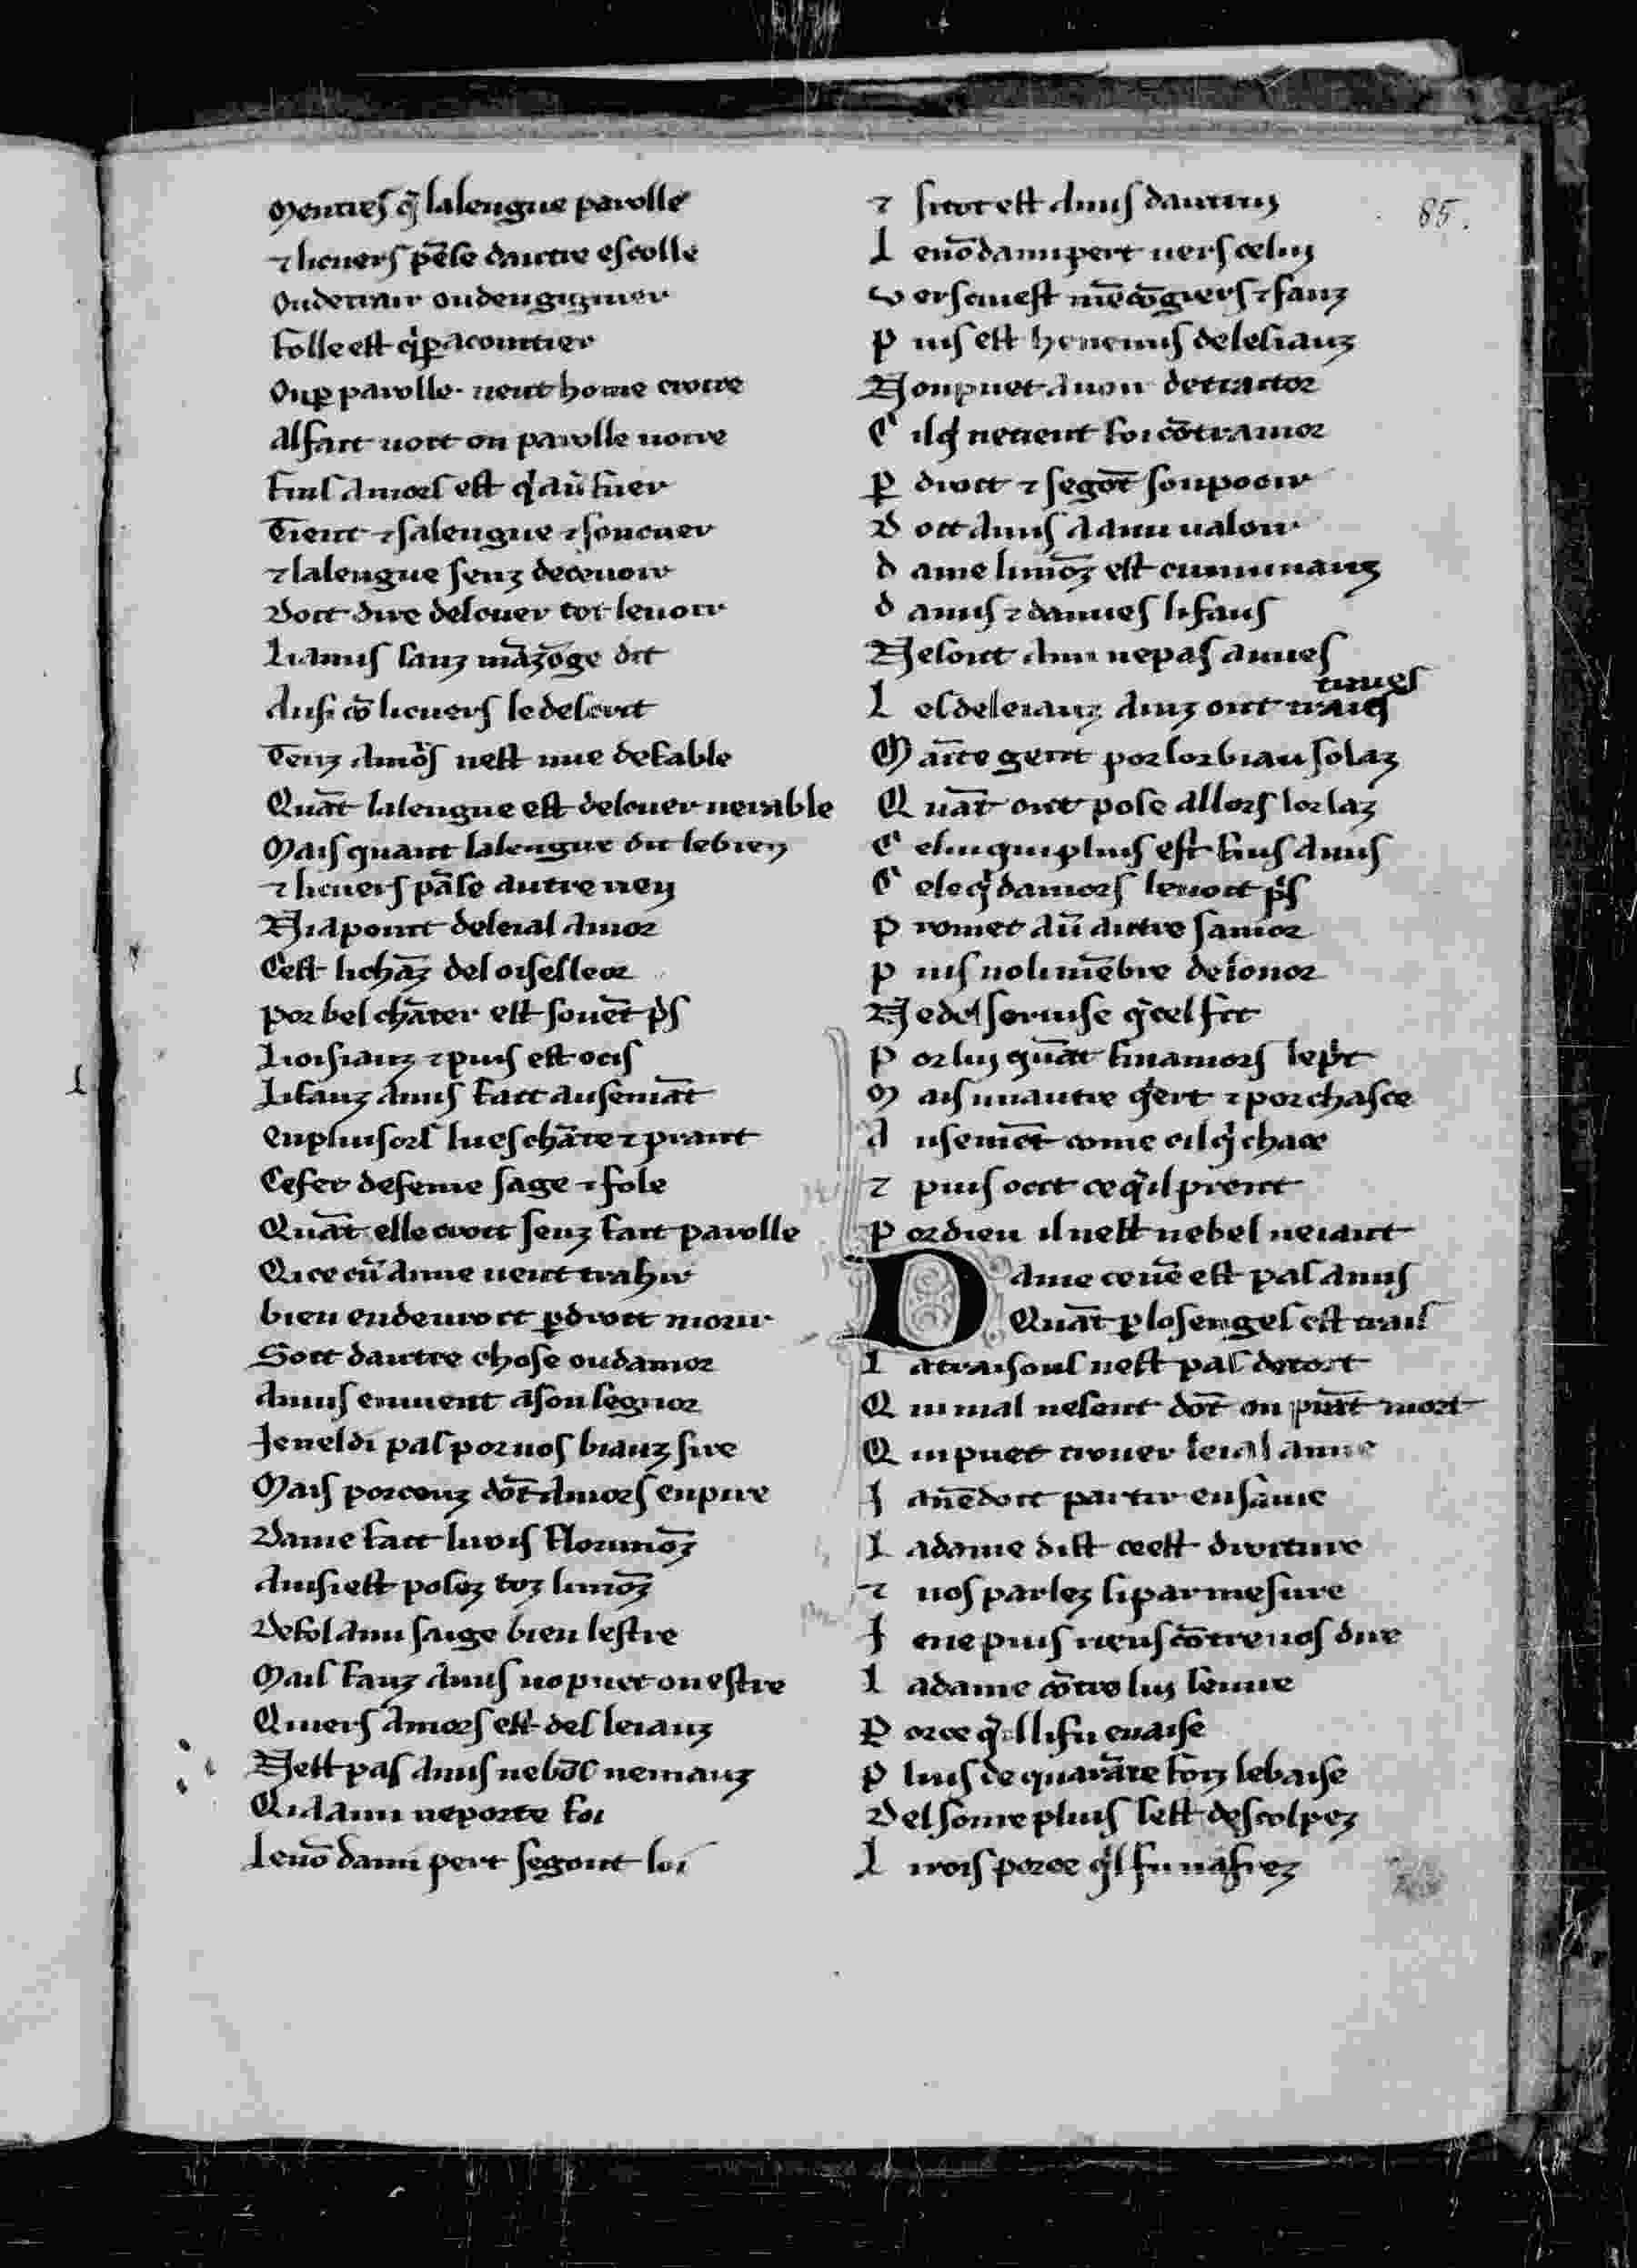 85.
Mentres q̄ lalengue parolle
⁊ licuers pēse dautre escolle
Oudetrair oudengignier
Folle est q̾ ꝑ acointier
Ou ꝑ parolle ueut home croire
Alfait uoit on parolle uoire
Fins amors est q̾ aū fuer
Tient ⁊ salengue ⁊ soncuer
⁊ lalengue senz deceuoir
Doit dire delcuer tot leuoir
Liamis sanz māzōge dit
Ausi cō licuers le descrit
Tenz amors nest mie defable
Quāt lalengue est delcuer ueiable
Mais quant lalengue dit lebien
⁊ licuers pāse autre rien
Niapoint deleial amor
Cest lichāz del oiselleor
Por bel chāter est souēt p̾s
Lioisianz ⁊ puis est ocis
Lifauz amis fait ausemāt
Enpluisors lues chāte ⁊ prant
Cefet defeme sage ⁊ fole
Quāt elle croit senz fait parolle
Qi ce cū amie ueut trahir
bien endeuroit ꝑdroit morir
Soit dautre chose oudamor
Amis enuient asonsegnor
Jeneldi pas poruos biauz sire
Mais porceuz dōt amors enpire
Dame fait lirois Florimōz
Ausi est polez toz limōz
Defol ami saige bien lestre
Mais fauz amis no puet on estre
Qiuers amors est desleiauz
Nest pas amis nebōs nemianz
Qi aami neporte foi
Lenō dami pert segont loi
⁊ sitot est amis dautrui
L enō dami pert uers celui
V ers cui est mēcōgiers ⁊ fauz
P uis est henemis desleiauz
Nonpuet auoir detraitor
C ilq̾ netient foi cōtramor
ꝑ droit ⁊ segōt sonpooir
D oit amis a ami ualoir
d ame limōz est cumunauz
d amis ⁊ damies lifaus
Nesont ami nepas amies
times
L es desleiauz ainz ont traiq
M aīte gent por lor biau solaz
Q uāt ont pose allors lor laz
C elui qui pluis est fins amis
C ele q̾ damors leuoit p̾s
P romet aū autre samor
P uis noli mēbre desonor
Ne del seruise q̾ cel fit
P or lui quāt finamors lep̾t
M ais un autre q̾ert ⁊ porchasce
A usemēt come cil q̾ chace
⁊ puis ocit ce q̾l prent
P or dieu il nest nebel neiant
Dame ce uē est pas amis
Quāt ꝑ losenges est trais
L atraisons nest pas detort
Q ui mal nesent dōt on prāt mort
Q ui puet trouer leial amie
J a nē doit partir ensa uie
L adame dist ce est droiture
⁊ uos parlez si par mesure
J e ne puis riens cōtre uos dire
L adame cōtre lui senuie
P or ce q̾l li fu enaise
P luis de quarāte foiz lebaise
Del sorre pluis sest descolpez
L irois por ce q̾l fu nafrez